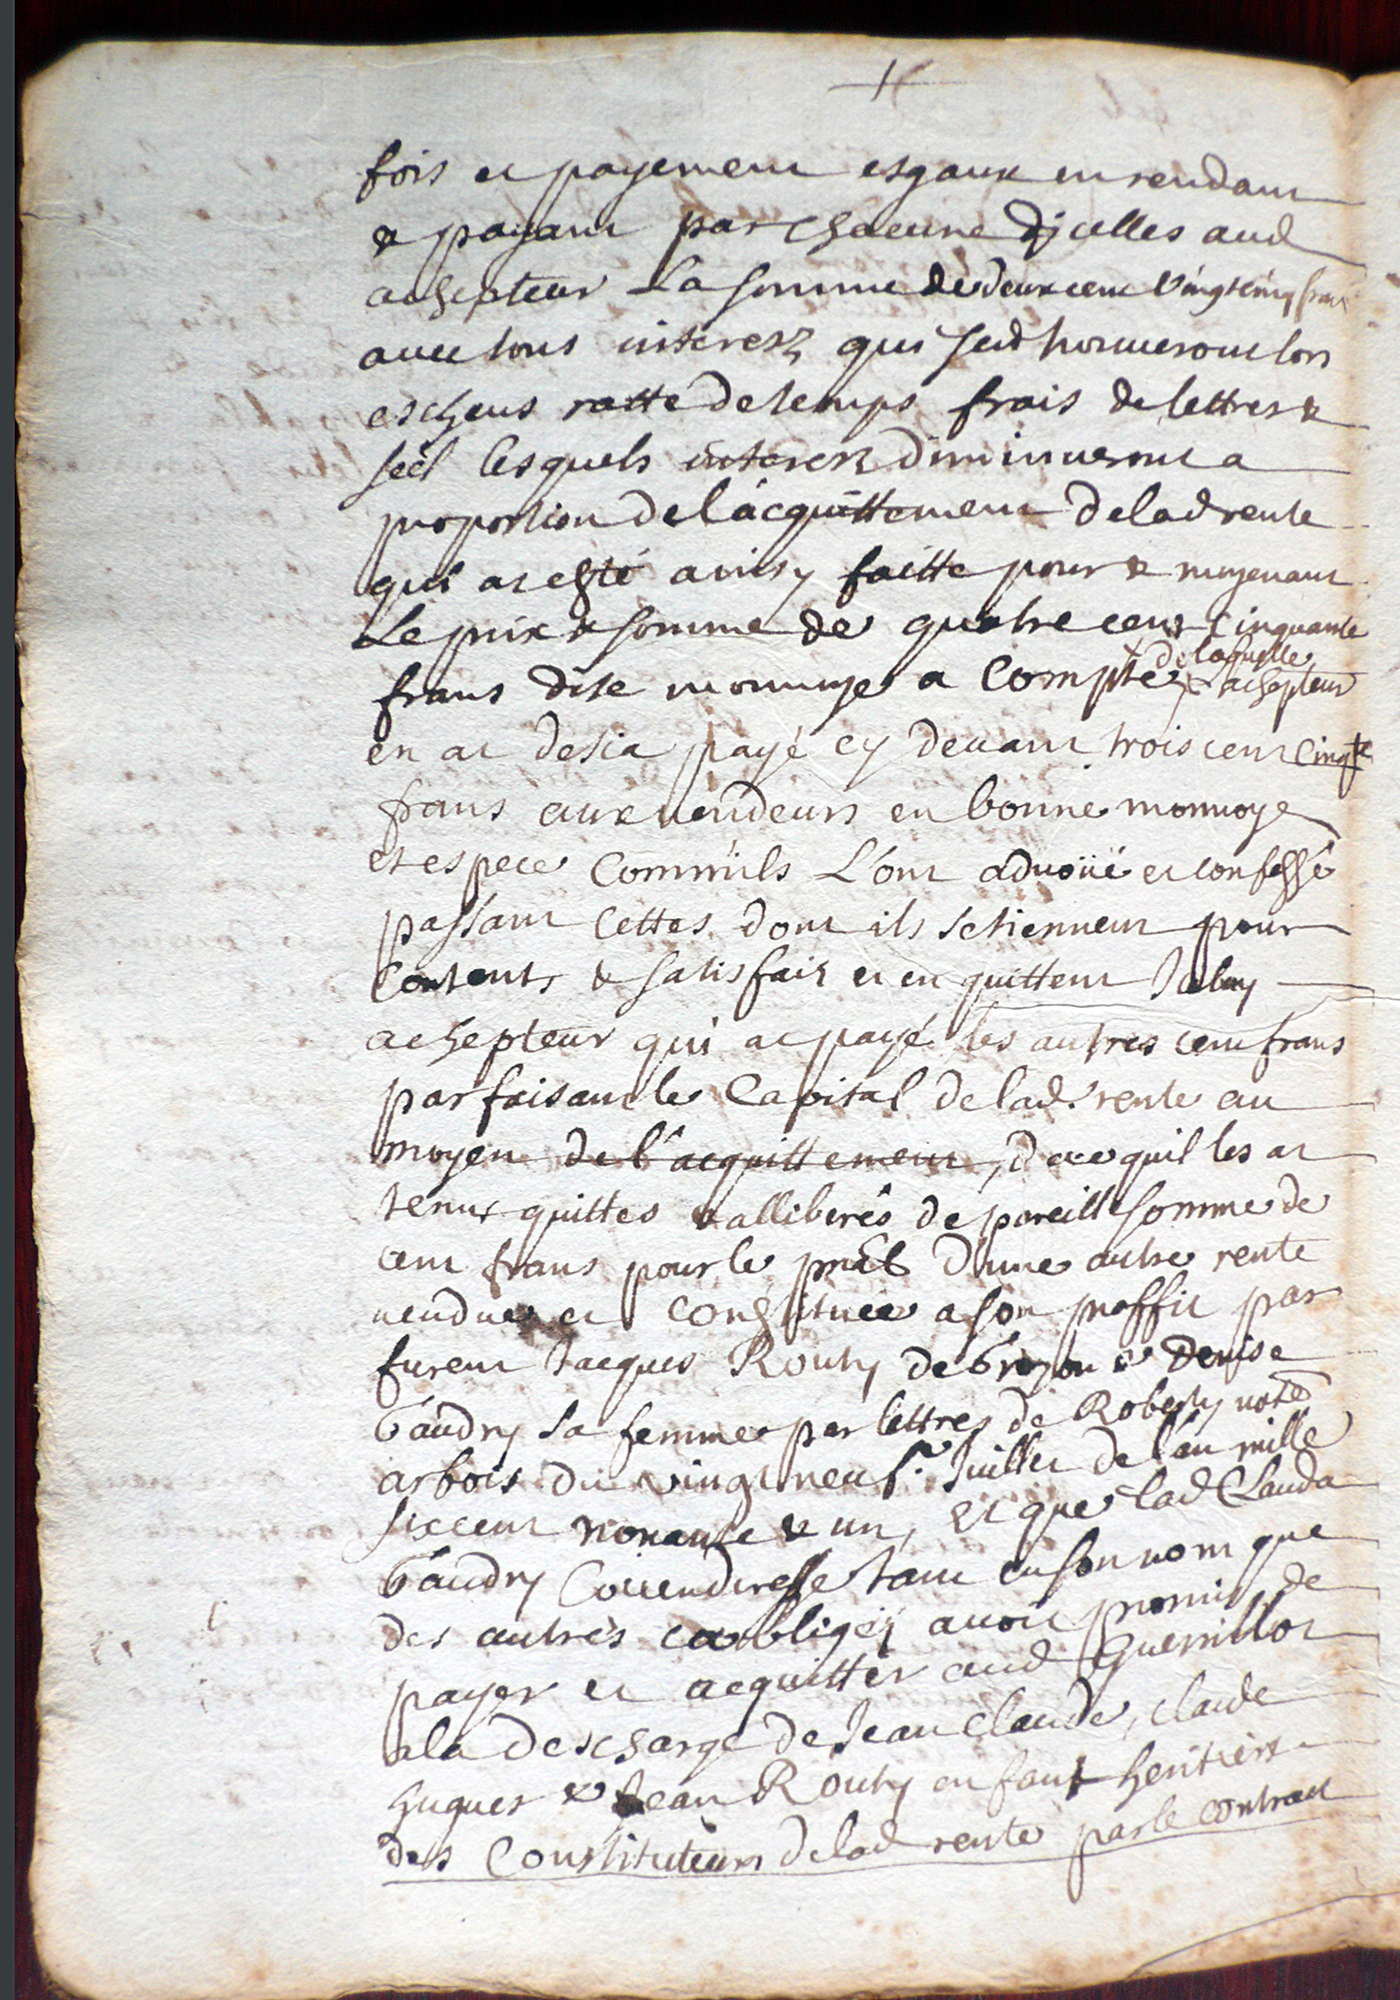 fois et payement esgaux en rendant
& payant par chacune dicelles aud
achepteur La somme de deux cent vingt cinq frans
avec tous interestz qui se
escheus ratte de temps frais de lettres &
seel lesquels interestz diminueront a
proportion de l'acquittement de lad rente
qui at esté ainsy faitte pour & moyenant
Le prix & somme de quatre cent cinquante
frans dite monnoye a Compte de laquelle
achepteur
en at desia payé cy devant trois cent cinqte
frans aux vendeurs en bonne monnoye
et espece Comm'ils L'ont advoüé et confessé
passant cettes dont ils se tiennent pour
Contents & satisfait et en quittent Iceluy
achepteur qui at payé les autres cent frans
parfaisant le Capital de lad. rente au
moyen de l'acquittement, de ce quil les at
tenus quittes & alliberés de pareille somme de
cent frans pour le prāl d'une autre rente
vendue et constituée a son proffit par
furent Jacques Routy de & Denise
Gaudry sa femme par lettres de Roberty notre
arbois du vingt neuf. Juillet de l'an mille
six cent nonante & un, et que lad Clauda
Gaudry Covenderesse tant en son nom que
des autres coobligez avoit promis de
payer et acquitter aud Guerillot
a la descharge de Jean Claude, claude
hugues & Jean Routy enfant heritiers
des Constituteurs de lad rente par le contract